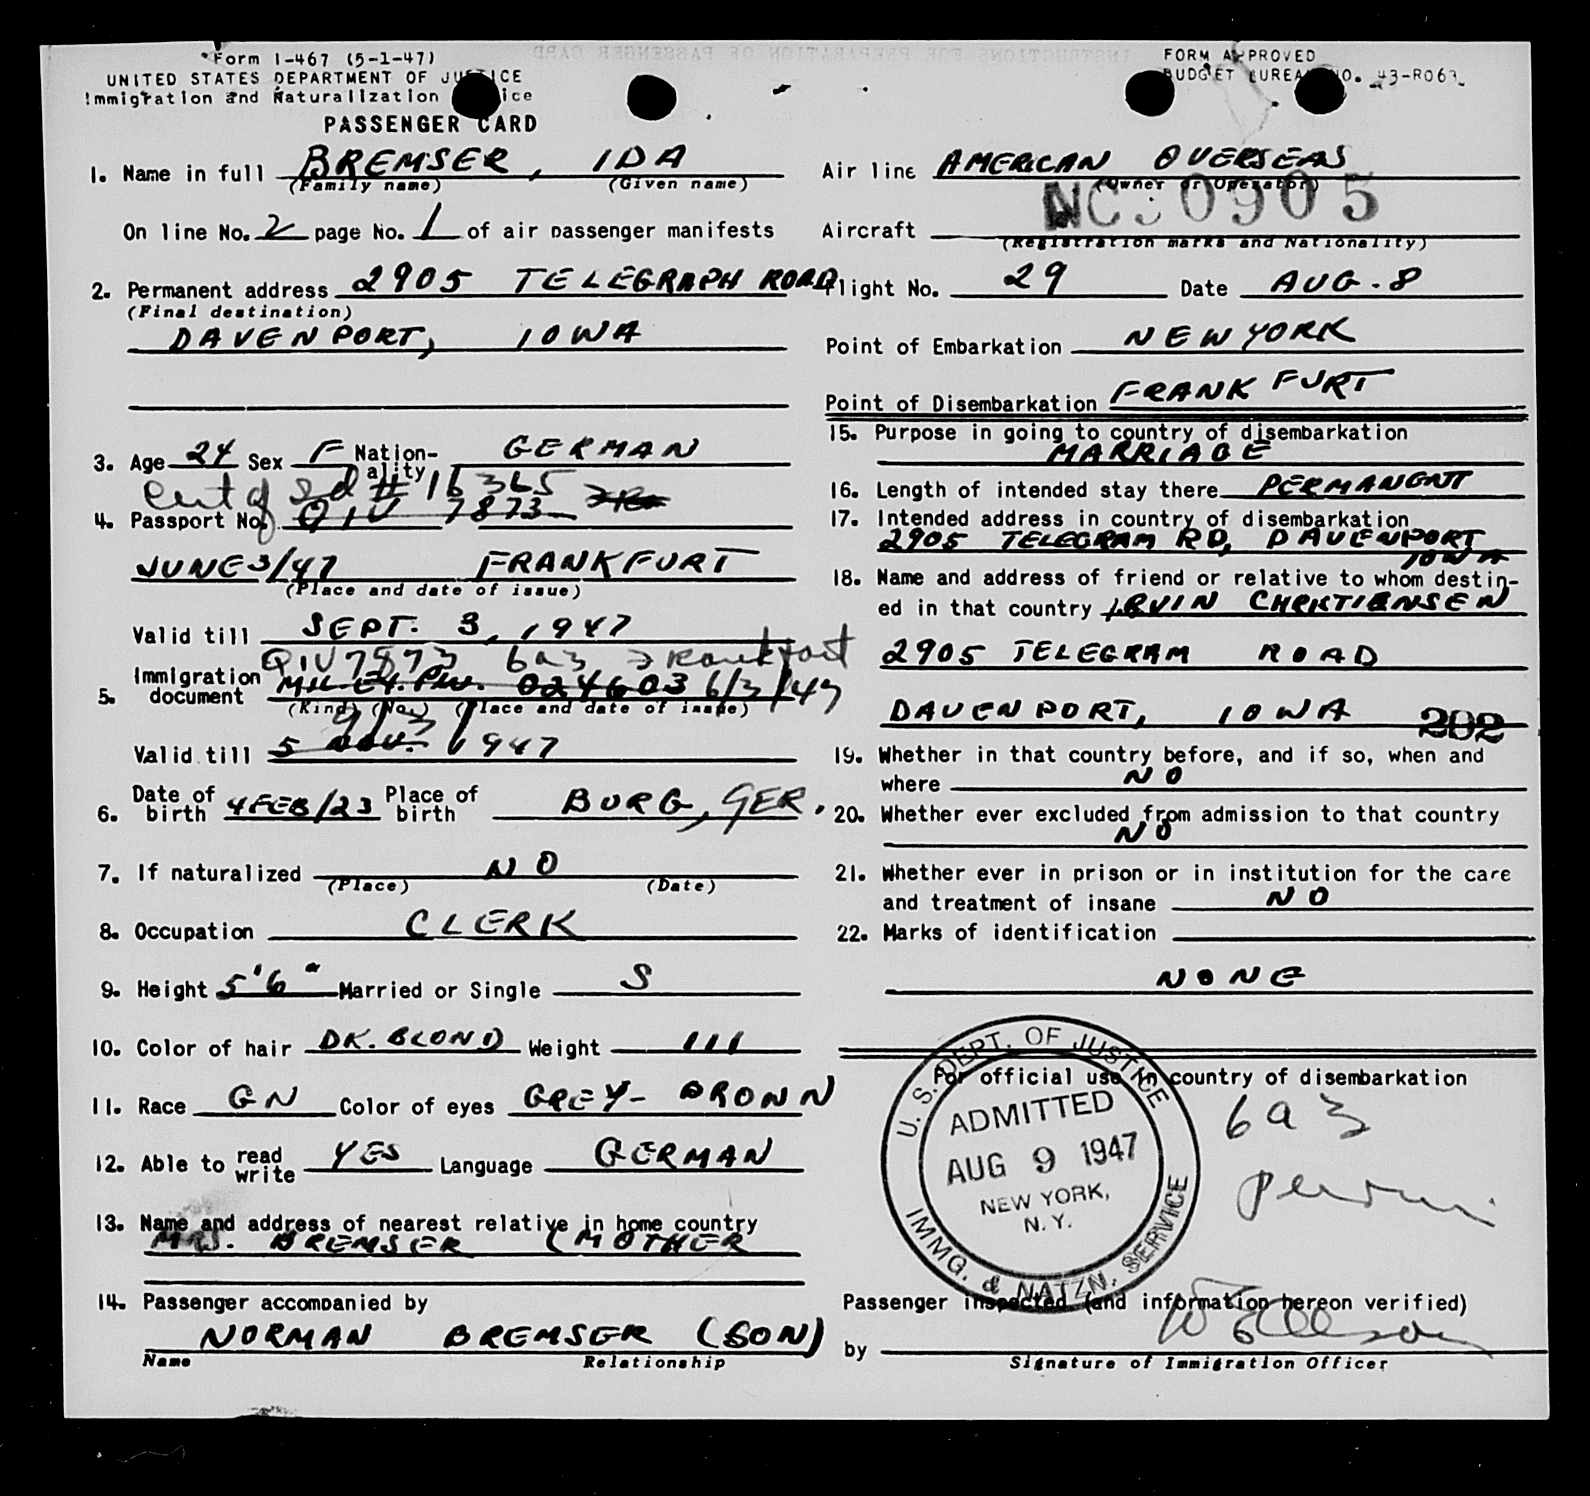 Form I-467 (5-1-47)
UNITED STATES DEPARTMENT OF JUSTICE
Immigration and Naturalization Service
PASSENGER CARD
1. Name in full BREMSER, IDA
(Family name) (Given name)
On line No. 2 page No. 1 of air passenger manifests
2. Permanent address 2905 TELEGRAPH ROAD
(Final destination)
DAVENPORT, IOWA
3. Age 24 Sex F Nation-ality GERMAN
Cert of Id # 16365
4. Passport No. QIV 7873
JUNE 3/47 FRANKFURT
(Place and date of issue)
Valid till SEPT. 3, 1947
QIV 7873 6a3 Frankfort
5. Immigration document 024603 6/3/47
(Kind) (No.) (Place and date of issue)
9/3/
Valid till 5 NOV. 1947
6. Date of birth 4 FEB/23 Place of birth BURG, GER.
7. If naturalized NO
(Place) (Date)
8. Occupation CLERK
9. Height 5'6" Married or Single S
10. Color of hair DK. BLOND Weight 111
11. Race GN Color of eyes GREY-BROWN
12. Able to read write YES Language GERMAN
13. Name and address of nearest relative in home country
MRS. BREMSER (MOTHER
14. Passenger accompanied by
NORMAN BREMSER (SON)
Name Relationship
FORM APPROVED
BUDGET BUREAU NO. 43-R063
Air line AMERICAN OVERSEAS
(Owner or Operator)
NC 90905
Aircraft
(Registration marks and Nationality)
Flight No. 29 Date AUG. 8
Point of Embarkation NEW YORK
Point of Disembarkation FRANKFURT
15. Purpose in going to country of disembarkation
MARRIAGE
16. Length of intended stay there PERMANENT
17. Intended address in country of disembarkation
2905 TELEGRAM RD, DAVENPORT
IOWA
18. Name and address of friend or relative to whom destin-
ed in that country IRVIN CHRKTIENSEN
2905 TELEGRAM ROAD
DAVENPORT, IOWA 292
19. Whether in that country before, and if so, when and
where NO
20. Whether ever excluded from admission to that country
NO
21. Whether ever in prison or in institution for the care
and treatment of insane NO
22. Marks of identification
NONE
For official use in country of disembarkation
U. S. DEPT. OF JUSTICE
ADMITTED
AUG 9 1947
NEW YORK,
N. Y.
IMMG. & NATZN. SERVICE
6a3
Passenger inspected (and information hereon verified)
by
Signature of Immigration Officer